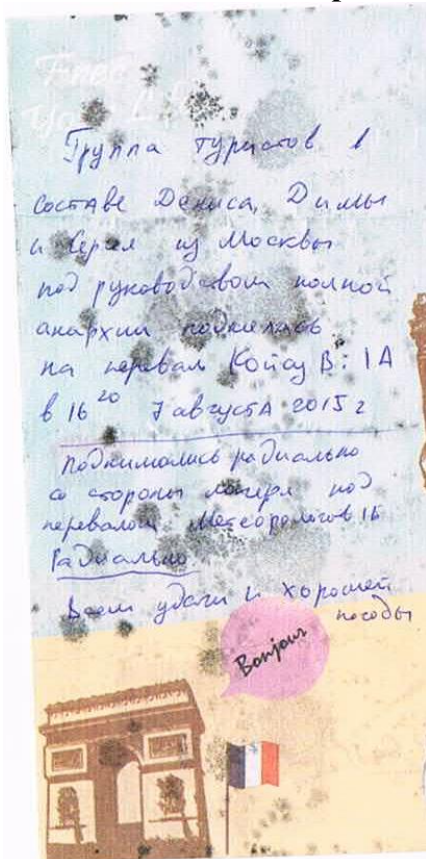 Free
Your Life
Группа туристов в
составе Дениса, Димы
и Сергея из Москвы
под руководством полной
анархии поднялась
на перевал Койсу В: 1А
в 16 20 7 августа 2015 г
поднимались радиально
со стороны лагеря под
перевалом Метеорологов 1Б
Радиально
Всем удачи и хорошей
погоды
Bonjour